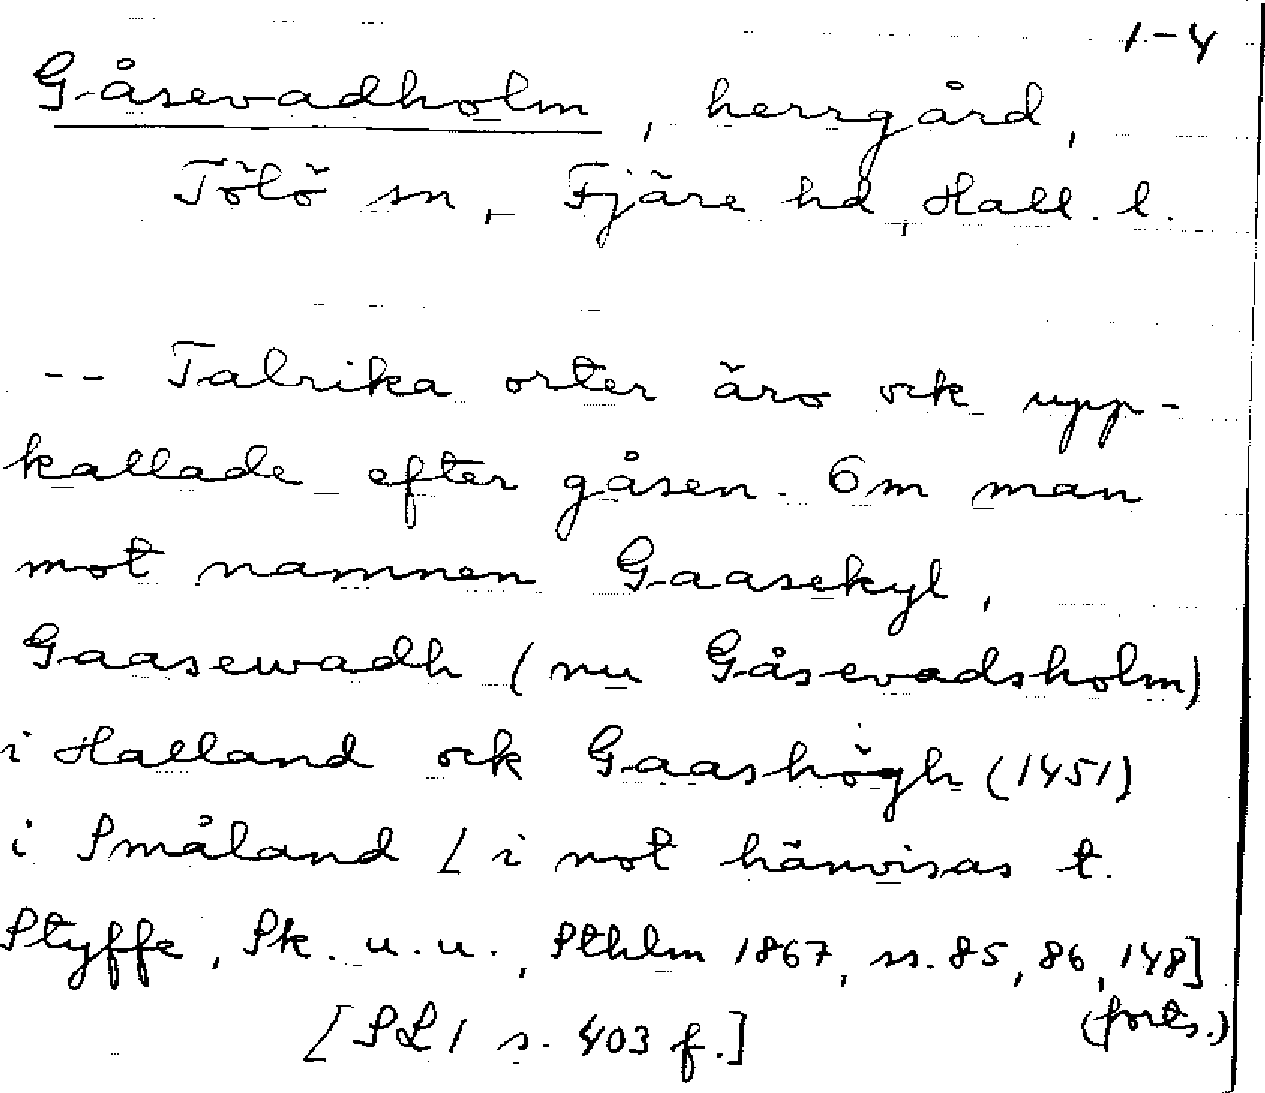 1-4
Gåsevadholm, herrgård,
Tölö sn, Fjäre hd, Hall. l.
-- Talrika orter äro ock upp-
kallade efter gåsen. Om man
mot namnen Gaasekyl,
Gaasewadh (nu Gåsevadsholm)
i Halland ock Gaashögh (1451)
i Småland [i not hänvisas t.
Styffe, Sk. u. u., Sthlm 1867, ss. 85, 86, 148]
[SL 1 s. 403 f.]
(forts.)